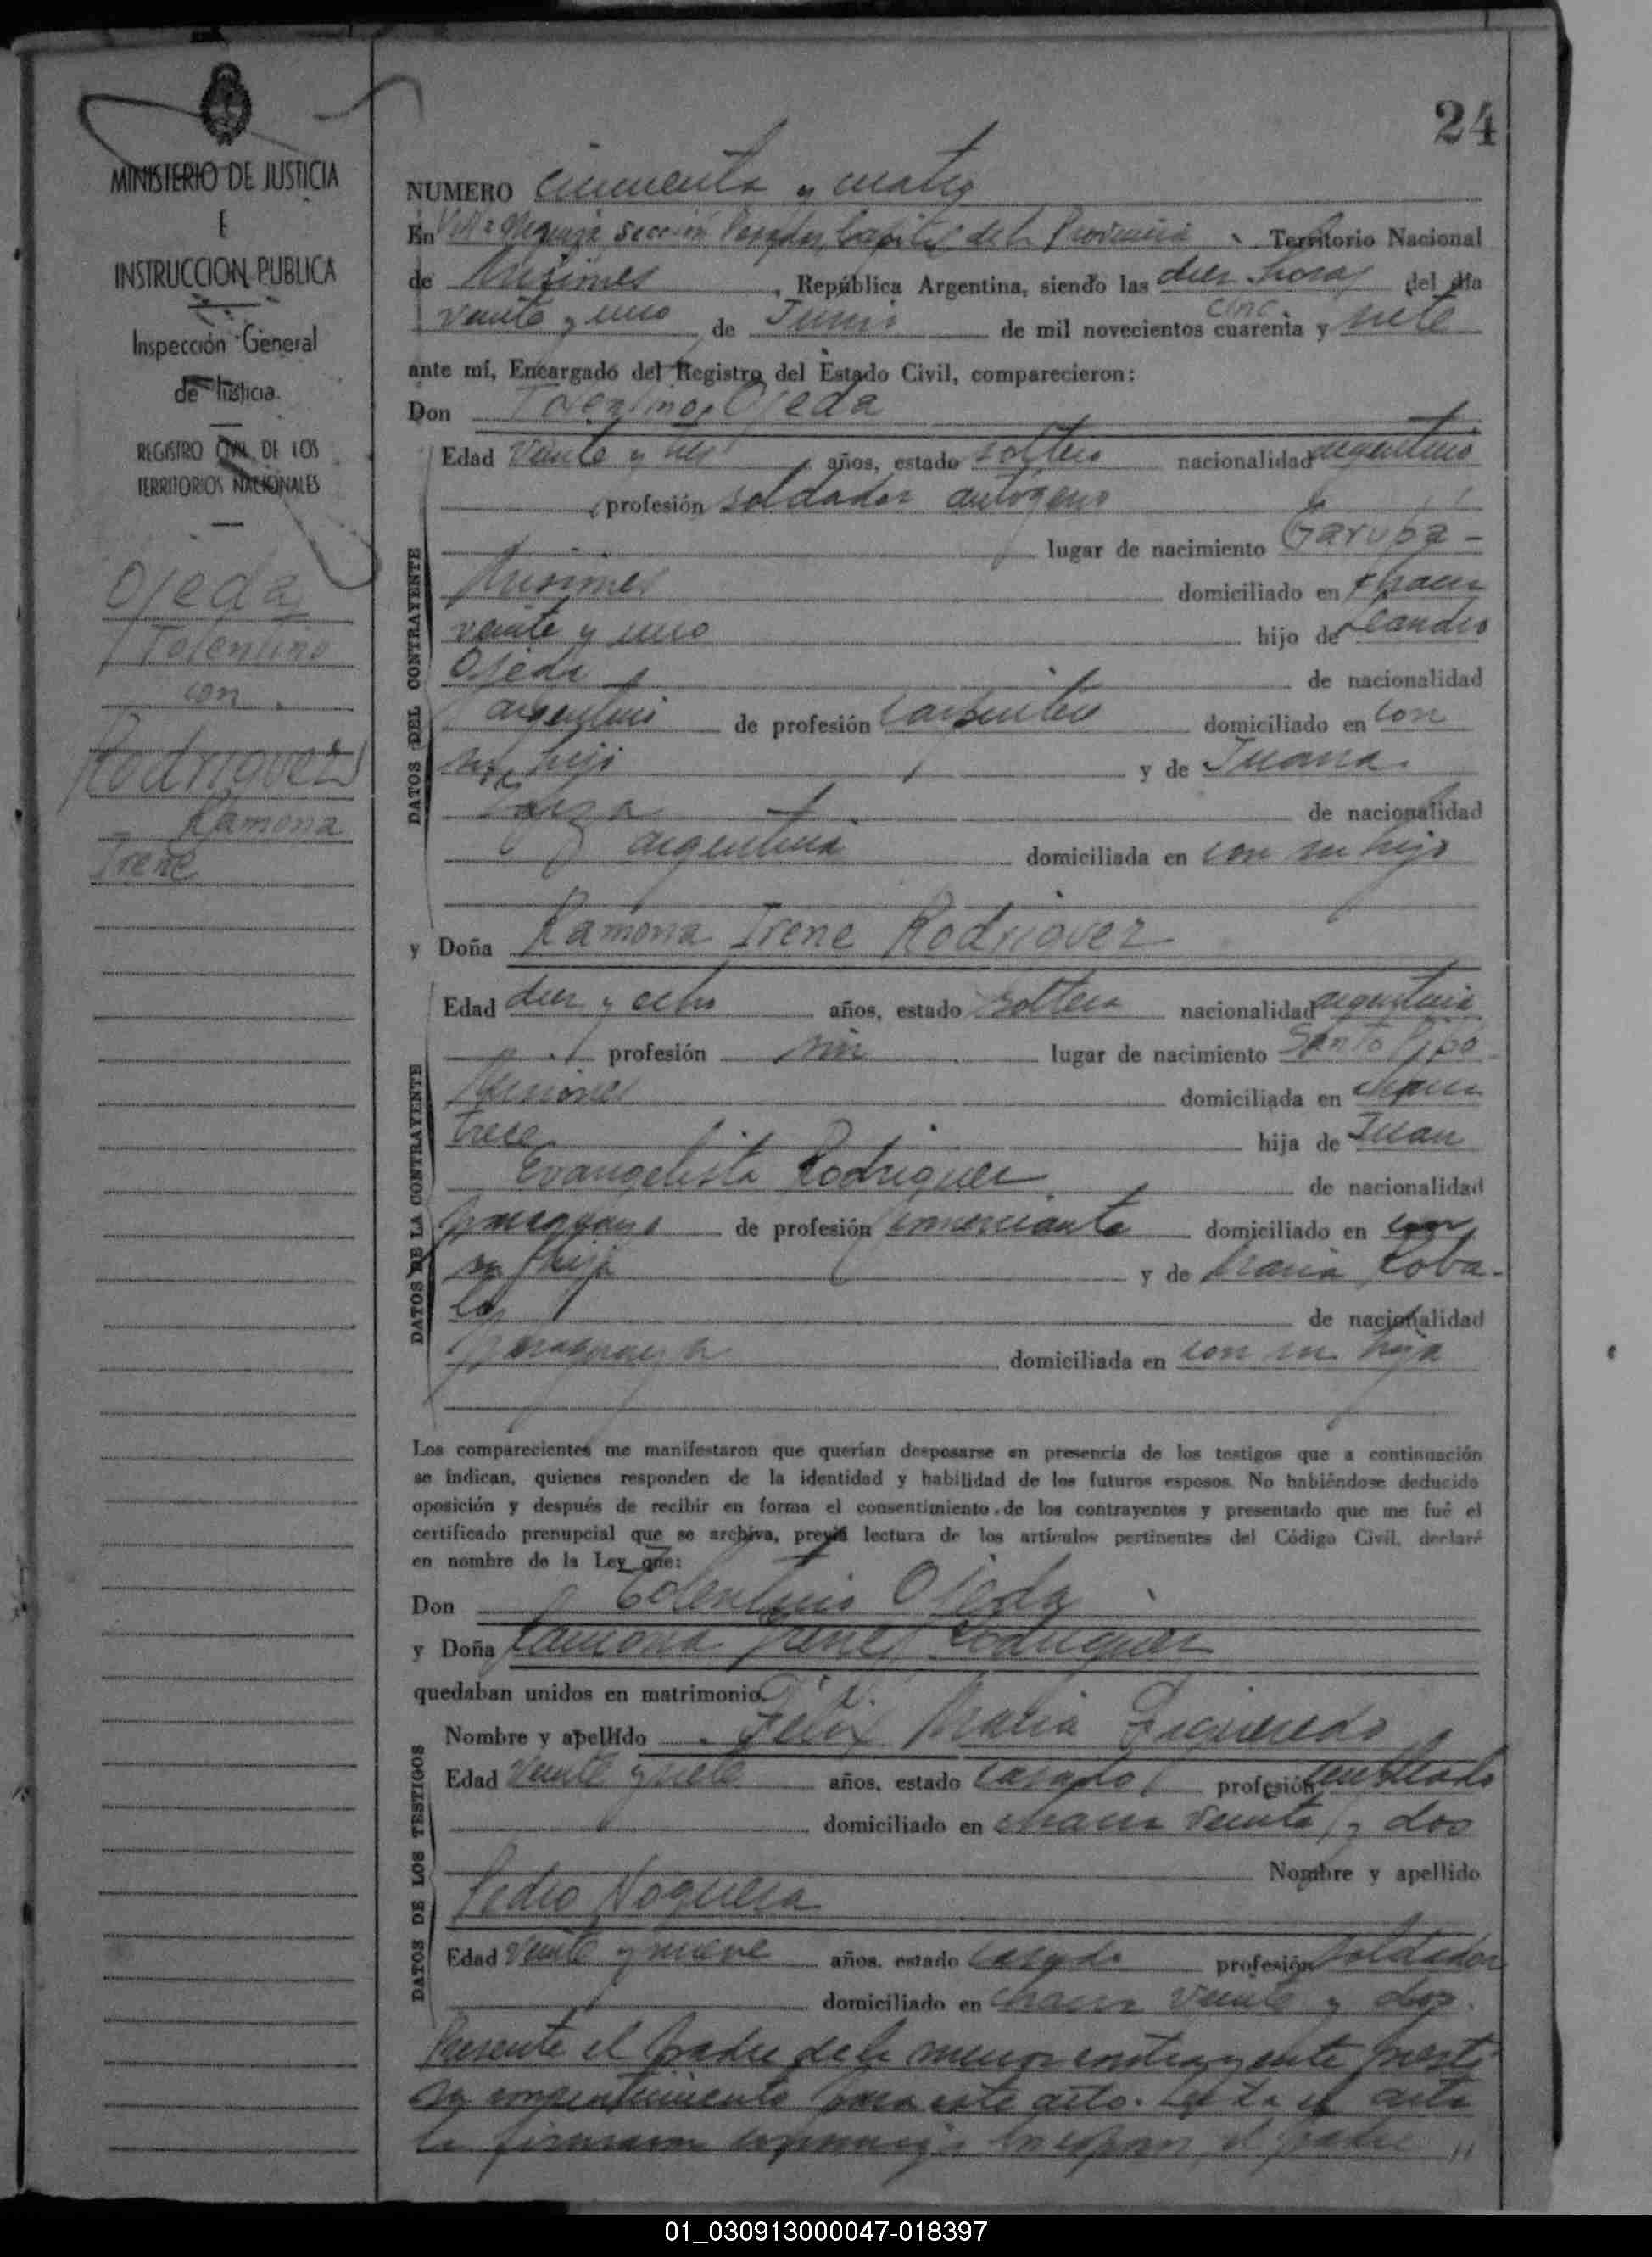 MINISTERIO DE JUSTICIA
E
INSTRUCCION PUBLICA
Inspección General
de Justicia.
REGISTRO CIVIL DE LOS
TERRITORIOS NACIONALES
Ojeda
Tolentino
con
Rodriguez
Ramona
Irene
24
NUMERO cincuenta y cuatro
En Villa Urquiza sección Posadas, Capital de la Provincia Territorio Nacional
de Misiones, República Argentina, siendo las diez horas del día
veinte y uno de Junio de mil novecientos cuarenta y siete
cinc
ante mí, Encargado del Registro del Estado Civil, comparecieron:
Don Tolentino Ojeda
DATOS DEL CONTRAYENTE
Edad veinte y tres años, estado soltero nacionalidad argentino
profesión soldador autógeno
lugar de nacimiento Garupá -
Misiones domiciliado en chacra
veinte y uno hijo de Leandro
Ojeda de nacionalidad
argentino de profesión carpintero domiciliado en con
su hijo y de Juana
de nacionalidad
argentina domiciliada en con su hijo
y Doña Ramona Irene Rodriguez
DATOS DE LA CONTRAYENTE
Edad diez y ocho años, estado soltera nacionalidad argentina
profesión sin lugar de nacimiento Santo Pipó
Misiones domiciliada en chacra
trece hija de Juan
Evangelista Rodriguez de nacionalidad
paraguayo de profesión comerciante domiciliado en con
su hija y de María Roba-
lo de nacionalidad
paraguaya domiciliada en con su hija
Los comparecientes me manifestaron que querían desposarse en presencia de los testigos que a continuación
se indican, quienes responden de la identidad y habilidad de los futuros esposos. No habiéndose deducido
oposición y después de recibir en forma el consentimiento de los contrayentes y presentado que me fué el
certificado prenupcial que se archiva, previa lectura de los artículos pertinentes del Código Civil, declaré
en nombre de la Ley que:
Don Tolentino Ojeda
y Doña Ramona Irene Rodriguez
quedaban unidos en matrimonio.
DATOS DE LOS TESTIGOS
Nombre y apellido Felix María Figueredo
Edad veinte y siete años, estado casado profesión empleado
domiciliado en chacra veinte y dos
Nombre y apellido
Pedro Noguera
Edad veinte y nueve años, estado casado profesión soldador
domiciliado en chacra veinte y dos.
Presente el padre de la menor contrayente prestó
su consentimiento para este acto. Leída el acta
la firmaron conmigo los esposos, el padre "
01_030913000047-018397